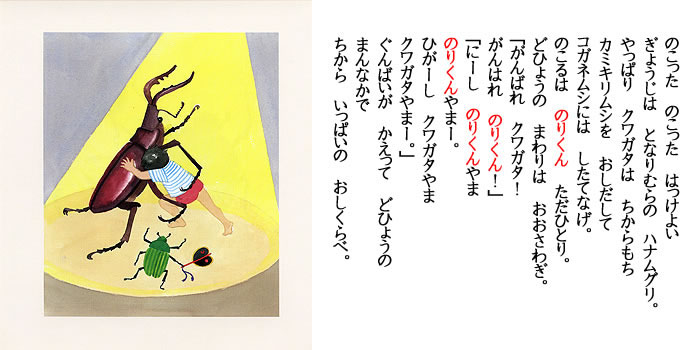 のこった のこった はっけよい
ぎょうじは となりむらの ハナムグリ。
やっぱり クワガタは ちからもち
カミキリムシを おしだして
コガネムシには したてなげ。
のこるは のりくん ただひとり。
どひょうの まわりは おおさわぎ。
「がんばれ クワガタ！
がんはれ のりくん！」
「にーし のりくんやま
のりくんやまー。
ひがーし クワガタやま
クワガタやまー。」
ぐんばいが かえって どひょうの
まんなかで
ちから いっぱいの おしくらべ。